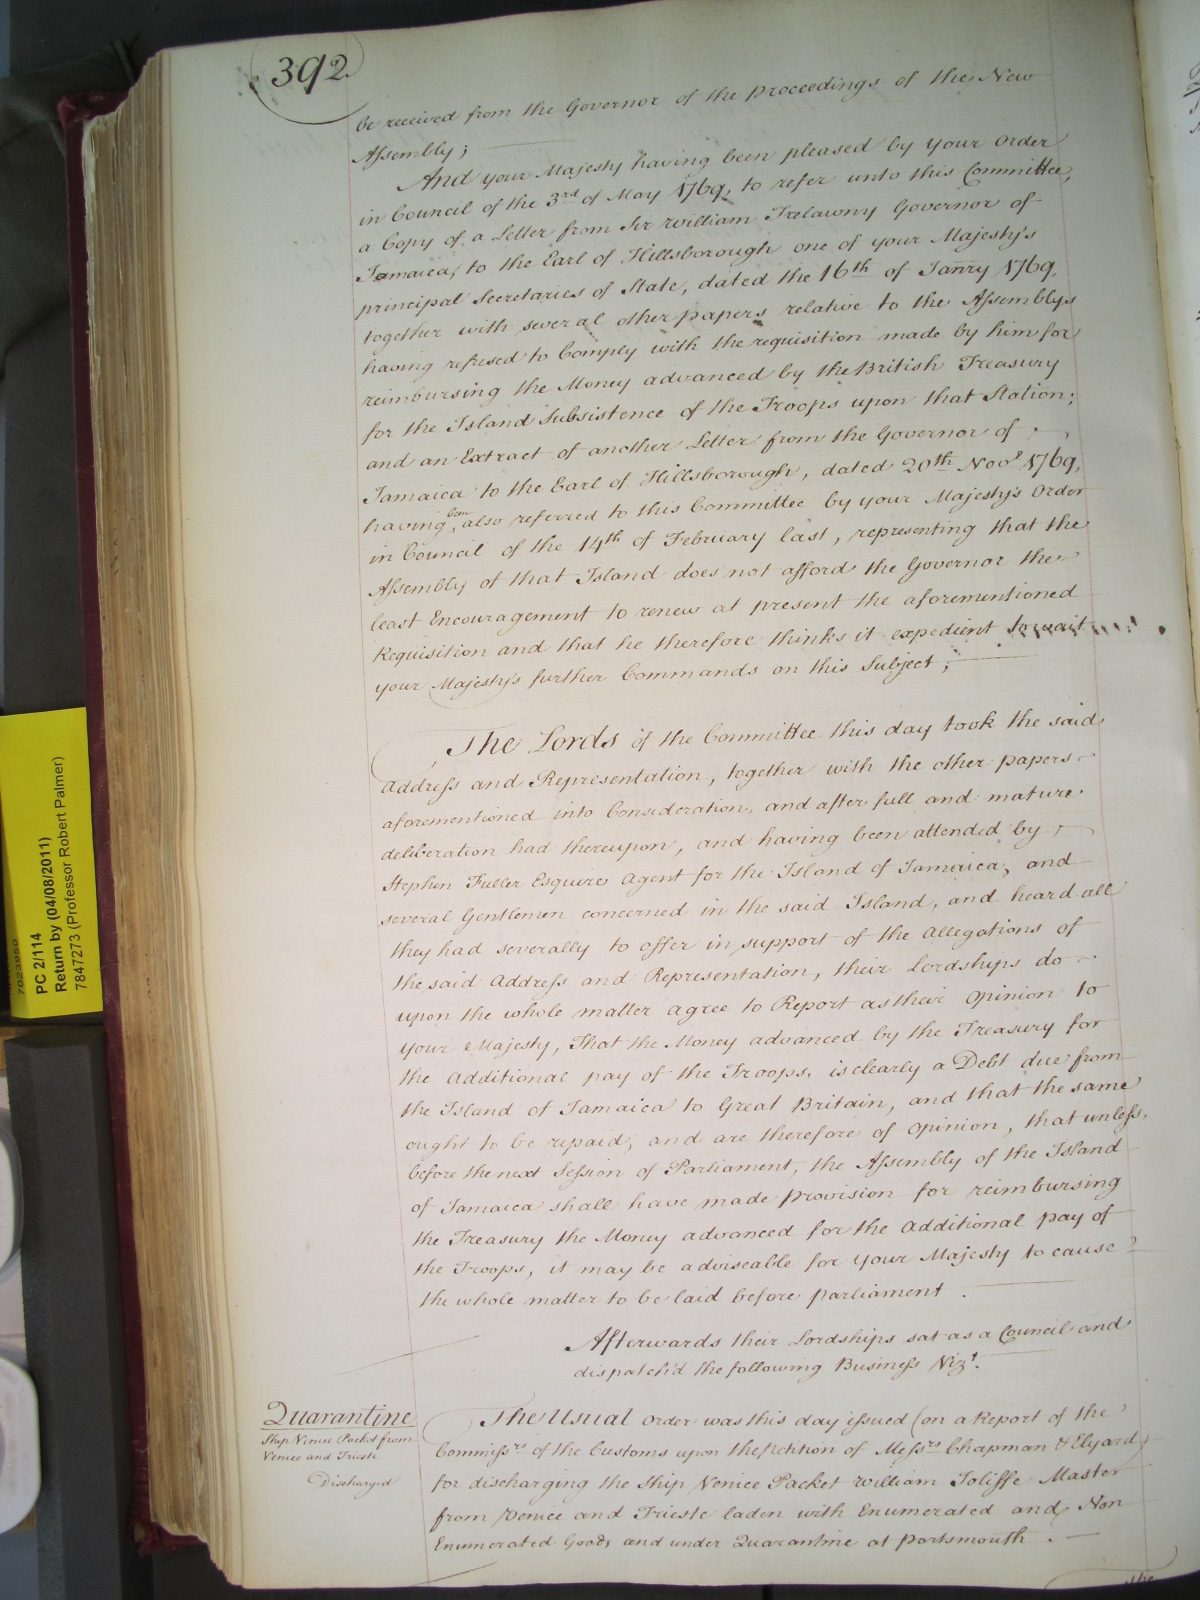 392.
be received from the Governor of the proceedings of the New
Assembly;
And your Majesty having been pleased by your Order
in Council of the 3rd of May 1769, to refer unto this Committee,
a Copy of a Letter from Sir William Trelawny Governor of
Jamaica, to the Earl of Hillsborough one of your Majesty's
principal Secretaries of State, dated the 16th of Janry 1769,
together with several other papers relative to the Assemblys
having refused to Comply with the requisition made by him for
reimbursing the Money advanced by the British Treasury
for the Island Subsistence of the Troops upon that Station;
and an Extract of another Letter from the Governor of
Jamaica to the Earl of Hillsborough, dated 20th Novr 1769,
having been also referred to this Committee by your Majesty's Order
in Council of the 14th of February last, representing that the
Assembly of that Island does not afford the Governor the
least Encouragement to renew at present the aforementioned
Requisition and that he therefore thinks it expedient to wait
your Majesty's further Commands on this Subject;
The Lords of the Committee this day took the said
Address and Representation, together with the other papers
aforementioned into Consideration, and after full and mature
deliberation had thereupon, and having been attended by
Stephen Fuller Esquire Agent for the Island of Jamaica, and
several Gentlemen concerned in the said Island, and heard all
they had severally to offer in support of the Allegations of
the said Address and Representation, their Lordships do
upon the whole matter agree to Report as their Opinion to
your Majesty, That the Money advanced by the Treasury for
the Additional pay of the Troops, is clearly a Debt due from
the Island of Jamaica to Great Britain, and that the same
ought to be repaid; and are therefore of Opinion, that unless,
before the next Session of Parliament, the Assembly of the Island
of Jamaica shall have made provision for reimbursing
the Treasury the Money advanced for the Additional pay of
the Troops, it may be adviseable for your Majesty to cause
the whole matter to be laid before parliament.
Afterwards their Lordships sat as a Council and
dispatch'd the following Business Vizt.
Quarantine
Ship Venice Packet from
Venice and Trieste
Discharged
The Usual Order was this day issued (on a Report of the
Commissrs of the Customs upon the petition of Messrs Chapman & Elyard)
for discharging the Ship Venice Packet William Joliffe Master
from Venice and Trieste laden with Enumerated and Non
Enumerated Goods and under Quarantine at Portsmouth.
The
PC 2/114
Return by (04/08/2011)
7847273 (Professor Robert Palmer)